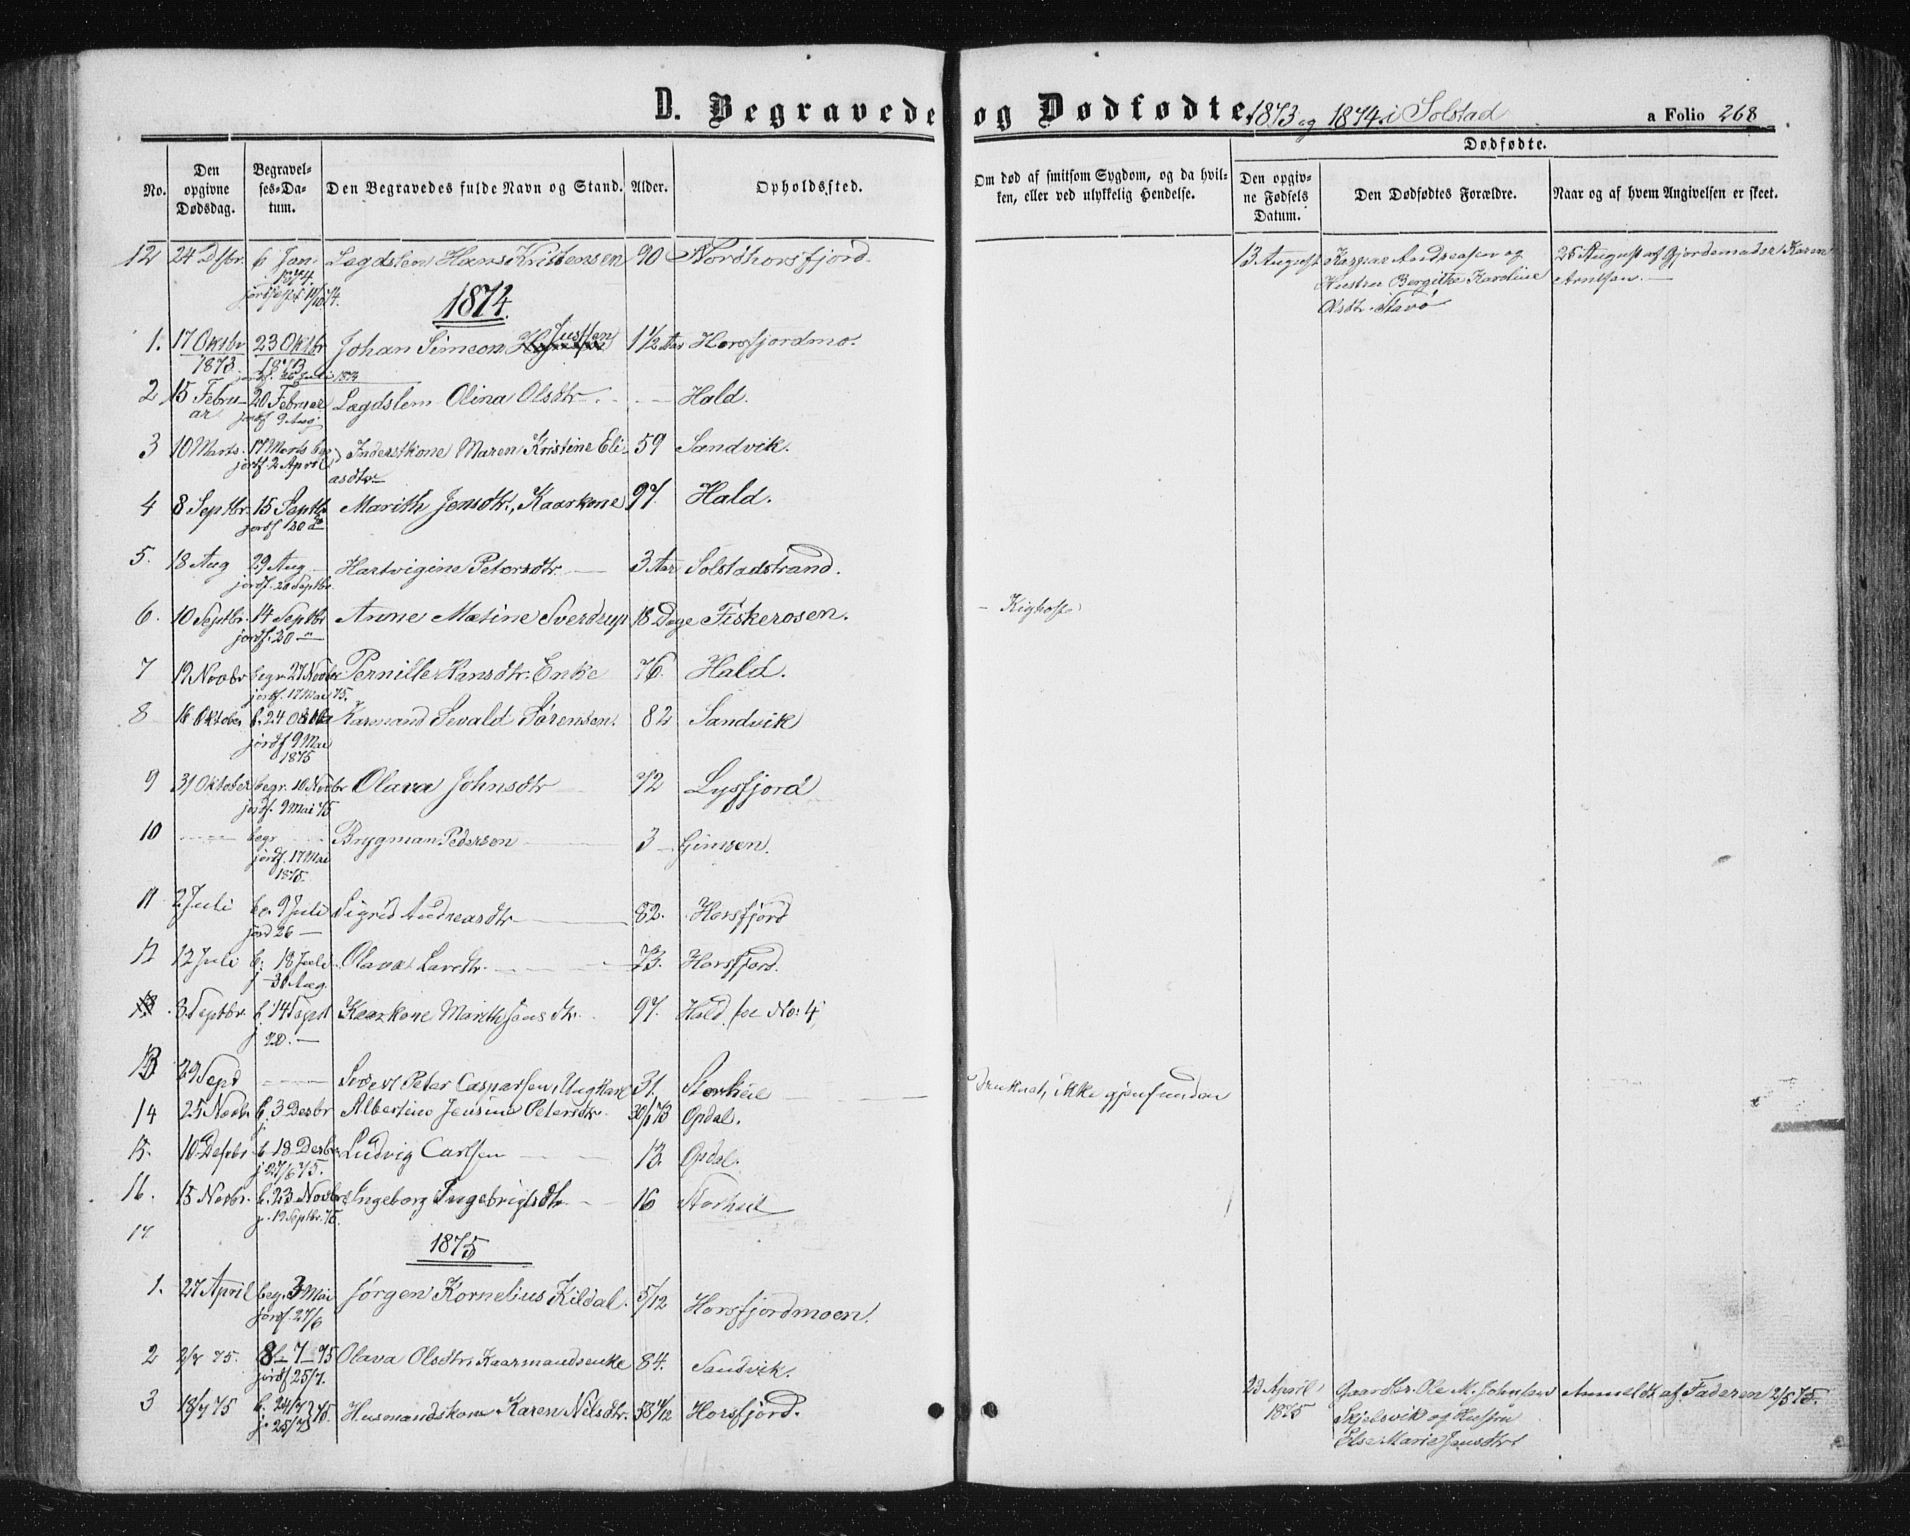 D. Begravede og Dødfødte 1873 og 1874 i Solstad a Folio 268
No. Den opgivne Dødsdag. Begravelses-Datum. Den Begravedes fulde Navn og Stand. Alder. Opholdssted. Om død af smitsom Sygdom, og da hvilken, eller ved ulykkelig Hendelse. Dødfødte.
Den opgivne Fødsels Datum. Den Dødfødtes Forældre. Naar og af hvem Angivelsen er skeet.
12 24 Dsbr. 6 Jan 1874 Lægdslem Hans Kristensen 90 Nordhorsfjord
13 August Kaspar Andreassen og Hustru Bergitte Karoline Olsdtr. Stavø
25 August af Gjordemoder Karen Arntsen
1874.
1. 17 Oktbr 1873. 23 Oktbr 1873 Johan Simeon Justsen 1 1/2 Aar Horsfjordmo.
2 15 Februar 20 Februar jordf 9 Aug. Lægdslem Olina Olsdtr. Hald.
3 10 Marts. 17 Marts jordf 2 April Inderstkone Maren Kristine Eliasdtr 59 Sandvik.
4 8 Septbr. 15 Septb. jordf 20 Marith Jonsdtr., Kaarkone 97. Hald.
5. 18 Aug 29 Aug jordf. 20 Septbr. Hartvigine Petersdtr. 3 Aar Solstadstrand.
6. 10 Septbr. 14 Septbr jordf. 20 " Anne Mætine Sverdrup 18 Dage Fiskerosen. - Kighoste
7 19 Novbr begr. 27 Novbr jordf. 17 Mai 75. Pernille Hansdtr. Enke 76. Hald.
8 16 Oktober b. 24 Oktb jordf 9 Mai 1875 Karmand Sevald Sørensen. 82 Sandvik
9 31 Oktober begr. 10 Novbr jordf. 9 Mai 75 Olava Johnsdtr 72 Lysfjord
10 begr. jordf. 17 Mai 1875. Brygman Pedersen 3 Gimsen.
11 2 Juli be. 9 Juli jord 26 Sigrid Andreasdtr 82. Horsfjord
12 12 Juli b: 18 Juli j 30 Aug. Olava Larsdtr. 73. Horsfjord.
13 8 Septbr. b. 14 Sept j 20. Kaarkone Marith Jonsdtr. 97. Hald. se No: 4
13 29 Sept Sivert Peter Casparsen, Ungkarl 31. Storheie druknet, ikke gjenfunden
14 25 Novbr. b. 3 Desbr Albertine Jensine Petersdtr. 30/1 73 Opdal.
15. 10 Desbr b 18 Desbr j 27/6 75. Ludvig Carlsen 13. Opdal.
16. 15 Novbr. b. 23 Novbr. j. 19 Septbr. 75. Ingeborg Ingebrigtsdtr 16 Storheie
17
1875
1. 27 April beg. 3 Mai jordf. 27/6 Jørgen Kornelius Kildal. 5/12 Horsfjordmoen.
2 2/7 75. 8-7-75 jordf 25/7. Olava Olsdtr. Kaarmandsenke 84. Sandvik.
3 18/7 75 b. 24/7 j. 25/7 75. Husmandskone Karen Nilsdtr. Horsfjord.
23 April 1875 Gaardbr. Ole M. Johnsen Skjelsvik og Hustru Else Marie Jonsdtr
Anmeldt af Faderen 2/5 75.